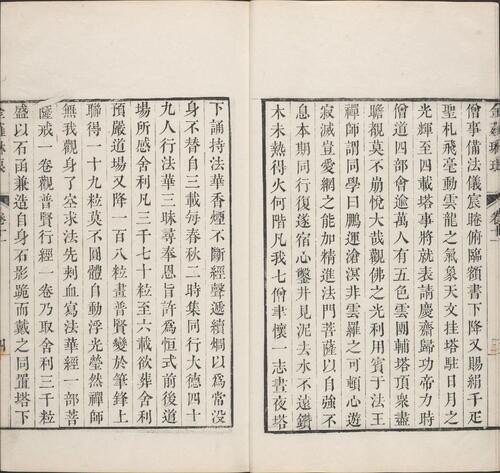 僧事備法儀宸睠俯臨額書下降又賜絹千疋
聖札飛毫動雲龍之氣象天文挂塔駐日月之
光輝至四載塔事將就表請慶齋歸功帝力時
僧道四部會逾萬人有五色雲團輔塔頂衆盡
瞻覩莫不崩悅大哉觀佛之光利用賓于法王
禪師謂同學曰鵬運滄溟非雲羅之可頓心遊
寂滅豈愛網之能加精進法門菩薩以自強不
息本期同行復遂宿心鑿井見泥去水不遠鑽
木未熱得火何階凡我七僧聿懷一志晝夜塔
下誦持法華香煙不斷經聲遞續炯以爲常没
身不替自三載每春秋二時集同行大德四十
九人行法華三昧尋奉恩旨許爲恒式前後道
場所感舍利凡三千七十粒至六載欲葬舍利
預嚴道場又降一百八粒畫普賢變於筆鋒上
聯得一十九粒莫不圓體自動浮光瑩然禪師
無我觀身了空求法先刺血寫法華經一部菩
薩戒一卷觀普賢行經一卷乃取舍利三千粒
盛以石函兼造自身石影跪而戴之同置塔下